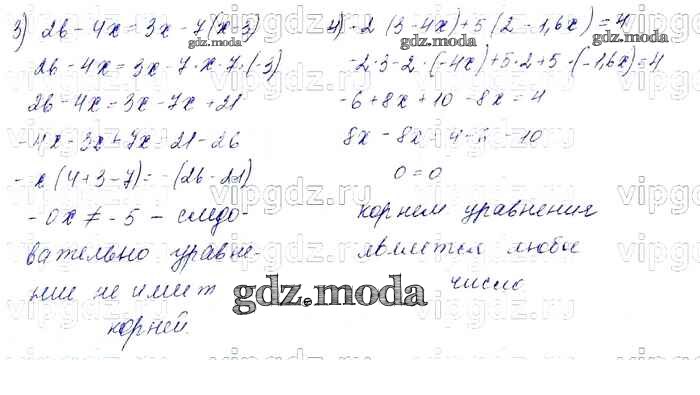 3) 26 - 4x = 3x - 7(x-3)
26 - 4x = 3x - 7·x - 7·(-3)
26 - 4x = 3x - 7x + 21
-4x - 3x + 7x = 21 - 26
-x(4+3-7) = -(26-21)
-0x ≠ -5 - следо-
вательно уравне-
ние не имеет
корней.
4) -2(3-4x)+5(2-1,6x)=4
-2·3-2·(-4x)+5·2+5·(-1,6x)=4
-6+8x+10-8x=4
8x-8x=4+6-10
0=0
корнем уравнения
является любое
число
gdz.moda